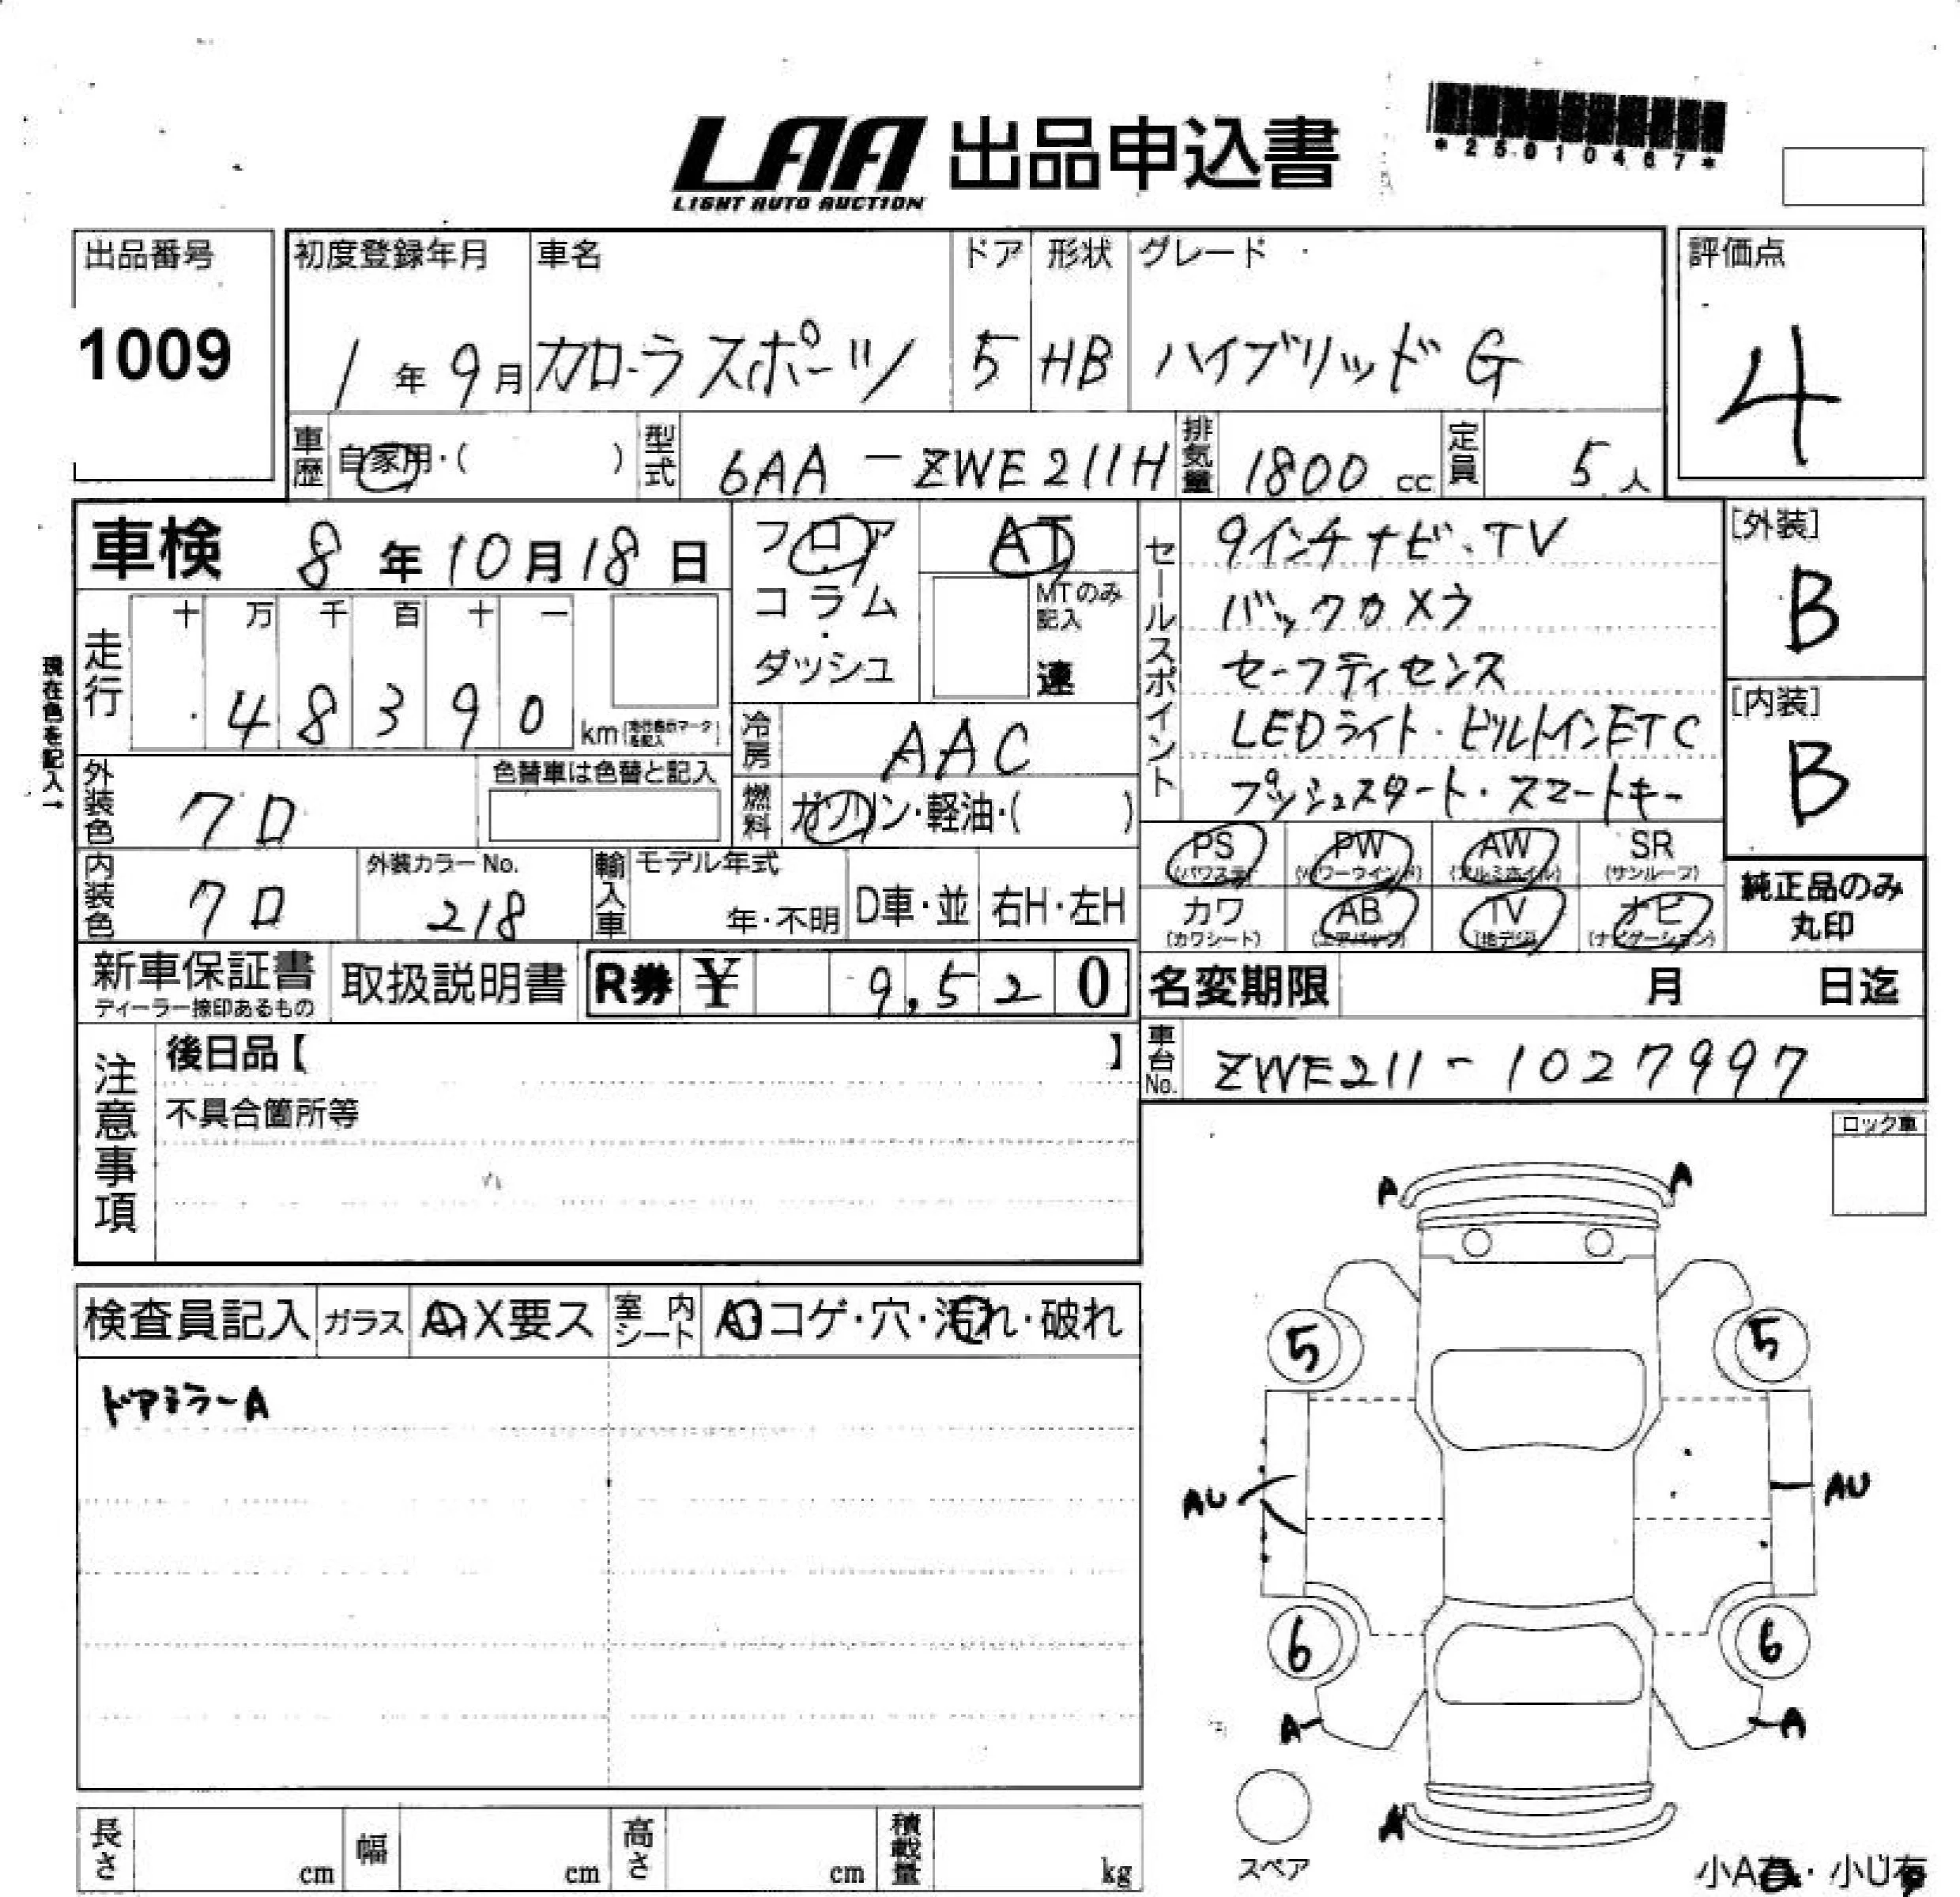 LAA 出品申込書
LIGHT AUTO AUCTION
*25010467*
出品番号
1009
初度登録年月 車名 ドア 形状 グレード
1年9月 カローラスポーツ 5 HB ハイブリッド G
評価点
4
車歴 自家用・( ) 型式 6AA-ZWE211H 排気量 1800cc 定員 5人
車検 8年10月18日
フロア
コラム
・
ダッシュ
AT
MTのみ
記入
速
セールスポイント
9インチナビ・TV
バックカメラ
セーフティセンス
LEDライト・ビルトインETC
プッシュスタート・スマートキー
[外装]
B
[内装]
B
現在色を記入→
走行
十 万 千 百 十 一
48390 km
冷房 AAC
外装色 クロ
色替車は色替と記入
燃料 ガソリン・軽油・( )
内装色 クロ
外装カラーNo.
218
輸入車 モデル年式
年・不明 D車・並 右H・左H
PS PW AW SR
(パワステ) (パワーウインド) (アルミホイル) (サンルーフ)
カワ AB TV ナビ
(カワシート) (エアバッグ) (地デジ) (ナビゲーション)
純正品のみ
丸印
新車保証書
ディーラー捺印あるもの
取扱説明書
R券 ¥ 9,520
名変期限 月 日迄
車台No. ZWE211-1027997
注意事項
後日品【 】
不具合箇所等
ロック車
検査員記入 ガラス A・X要ス 室内シート A・コゲ・穴・汚れ・破れ
ドアミラーA
A A
5 5
AU AU
6 6
A A
A
スペア
長さ cm 幅 cm 高さ cm 積載量 kg
小A有・小U有